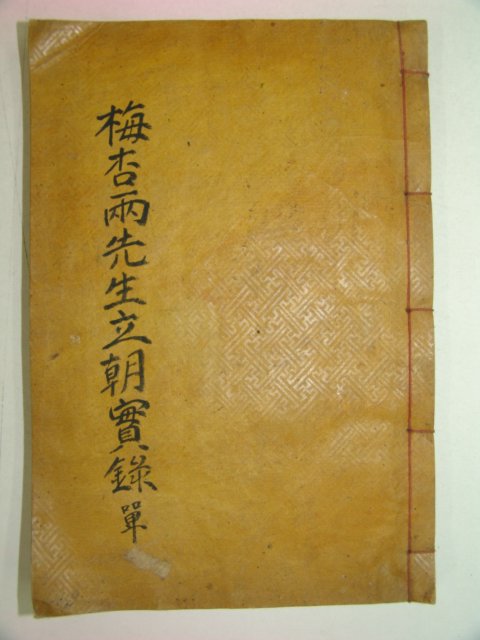 梅杏兩先生立朝實錄 單